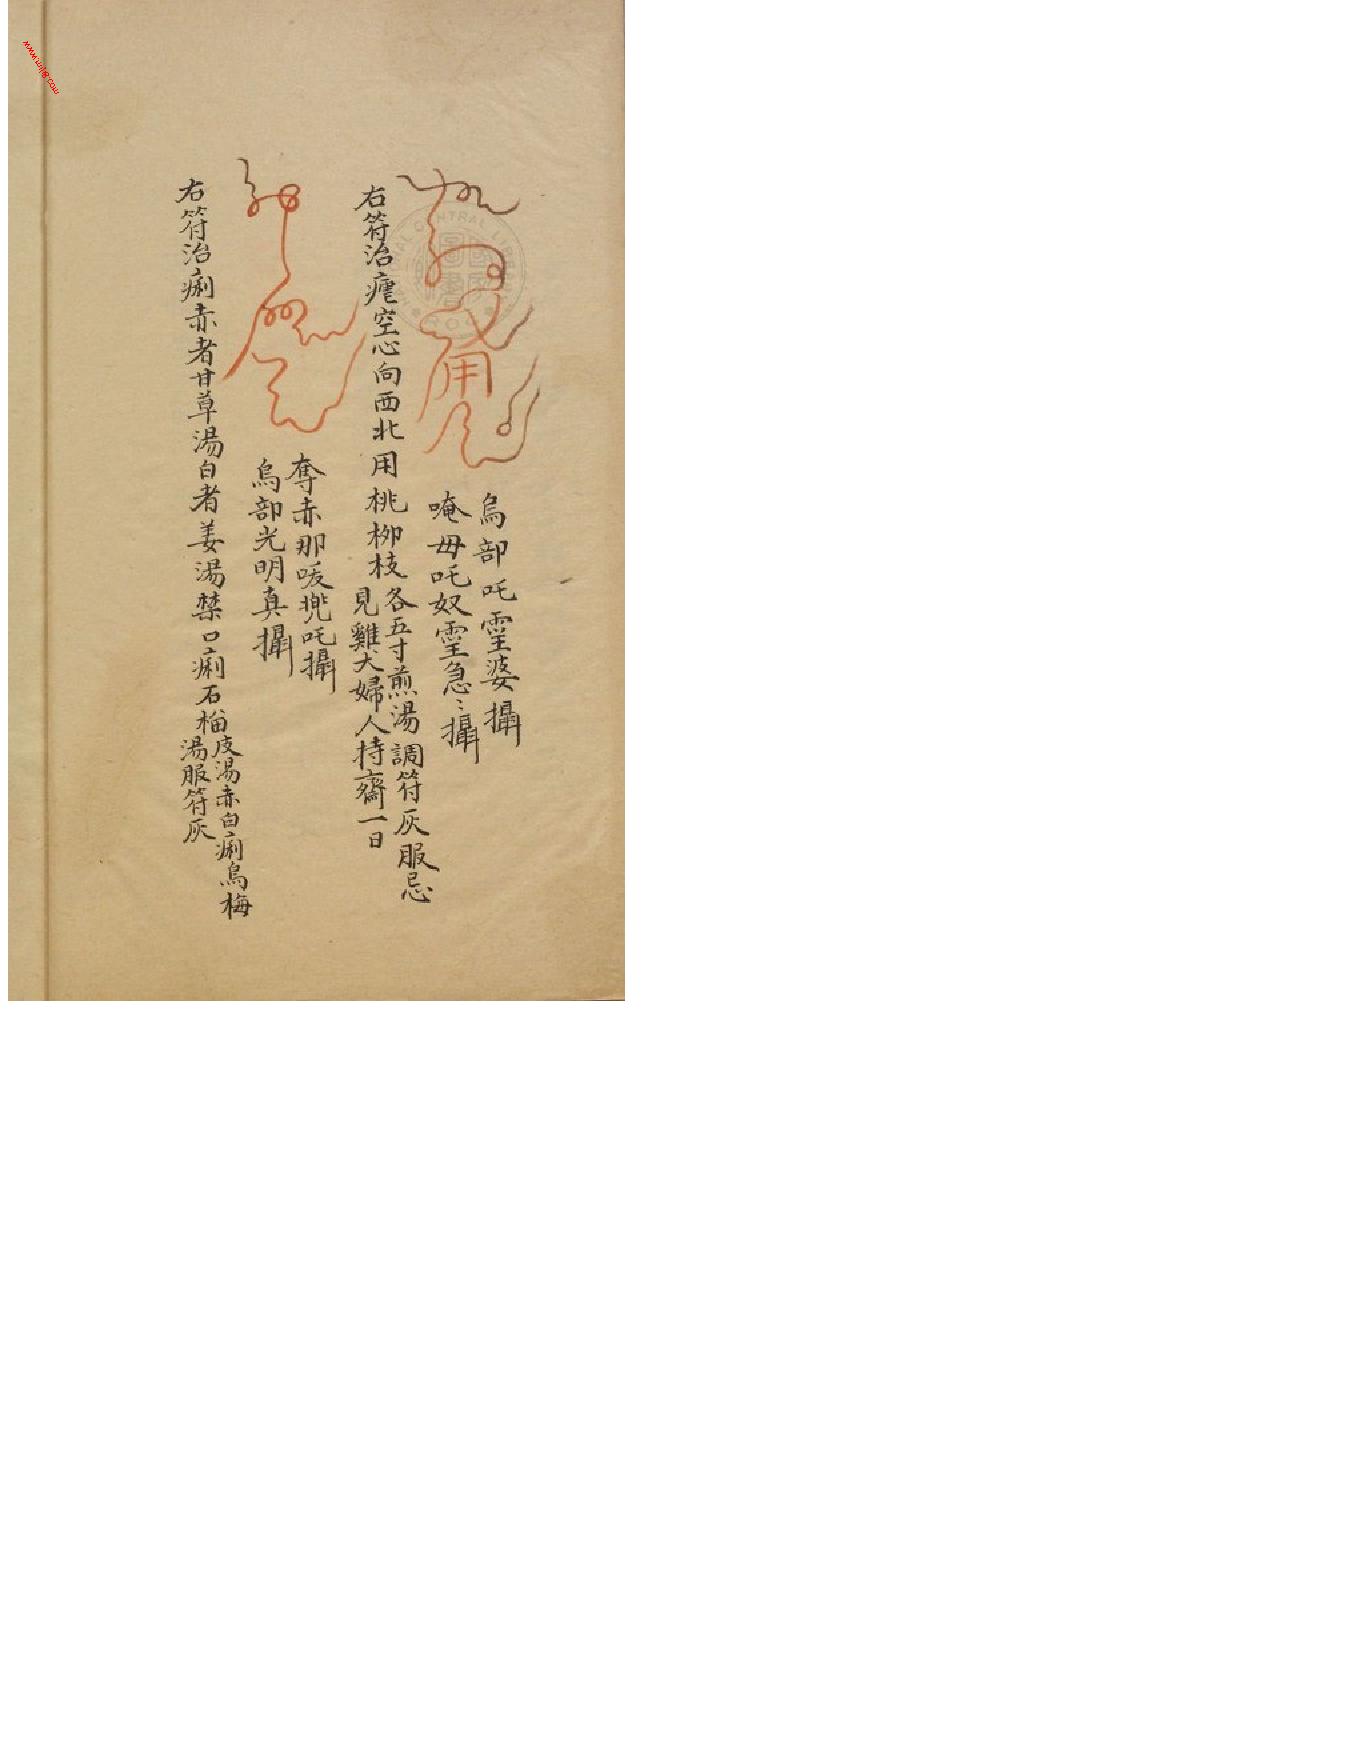 烏部吒靈婆攝
唵毋吒奴靈急〻攝
右符治瘧空心向西北用桃柳枝各五寸煎湯調符灰服忌
見雞犬婦人持齋一日
奪赤那吺兠吒攝
烏部光明真攝
右符治痢赤者甘草湯白者姜湯禁口痢石榴皮湯赤白痢烏梅
湯服符灰
NATIONAL CENTRAL LIBRARY
ROC